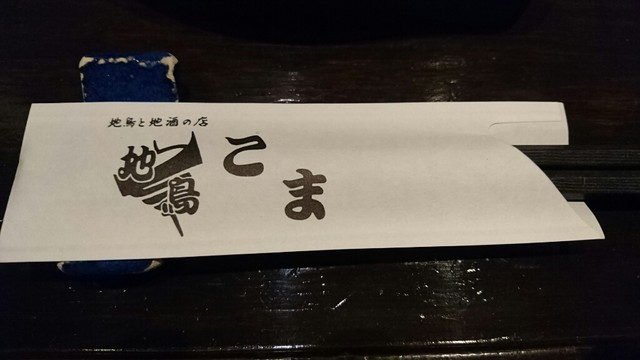 地鳥と地酒の店
地鳥
こま